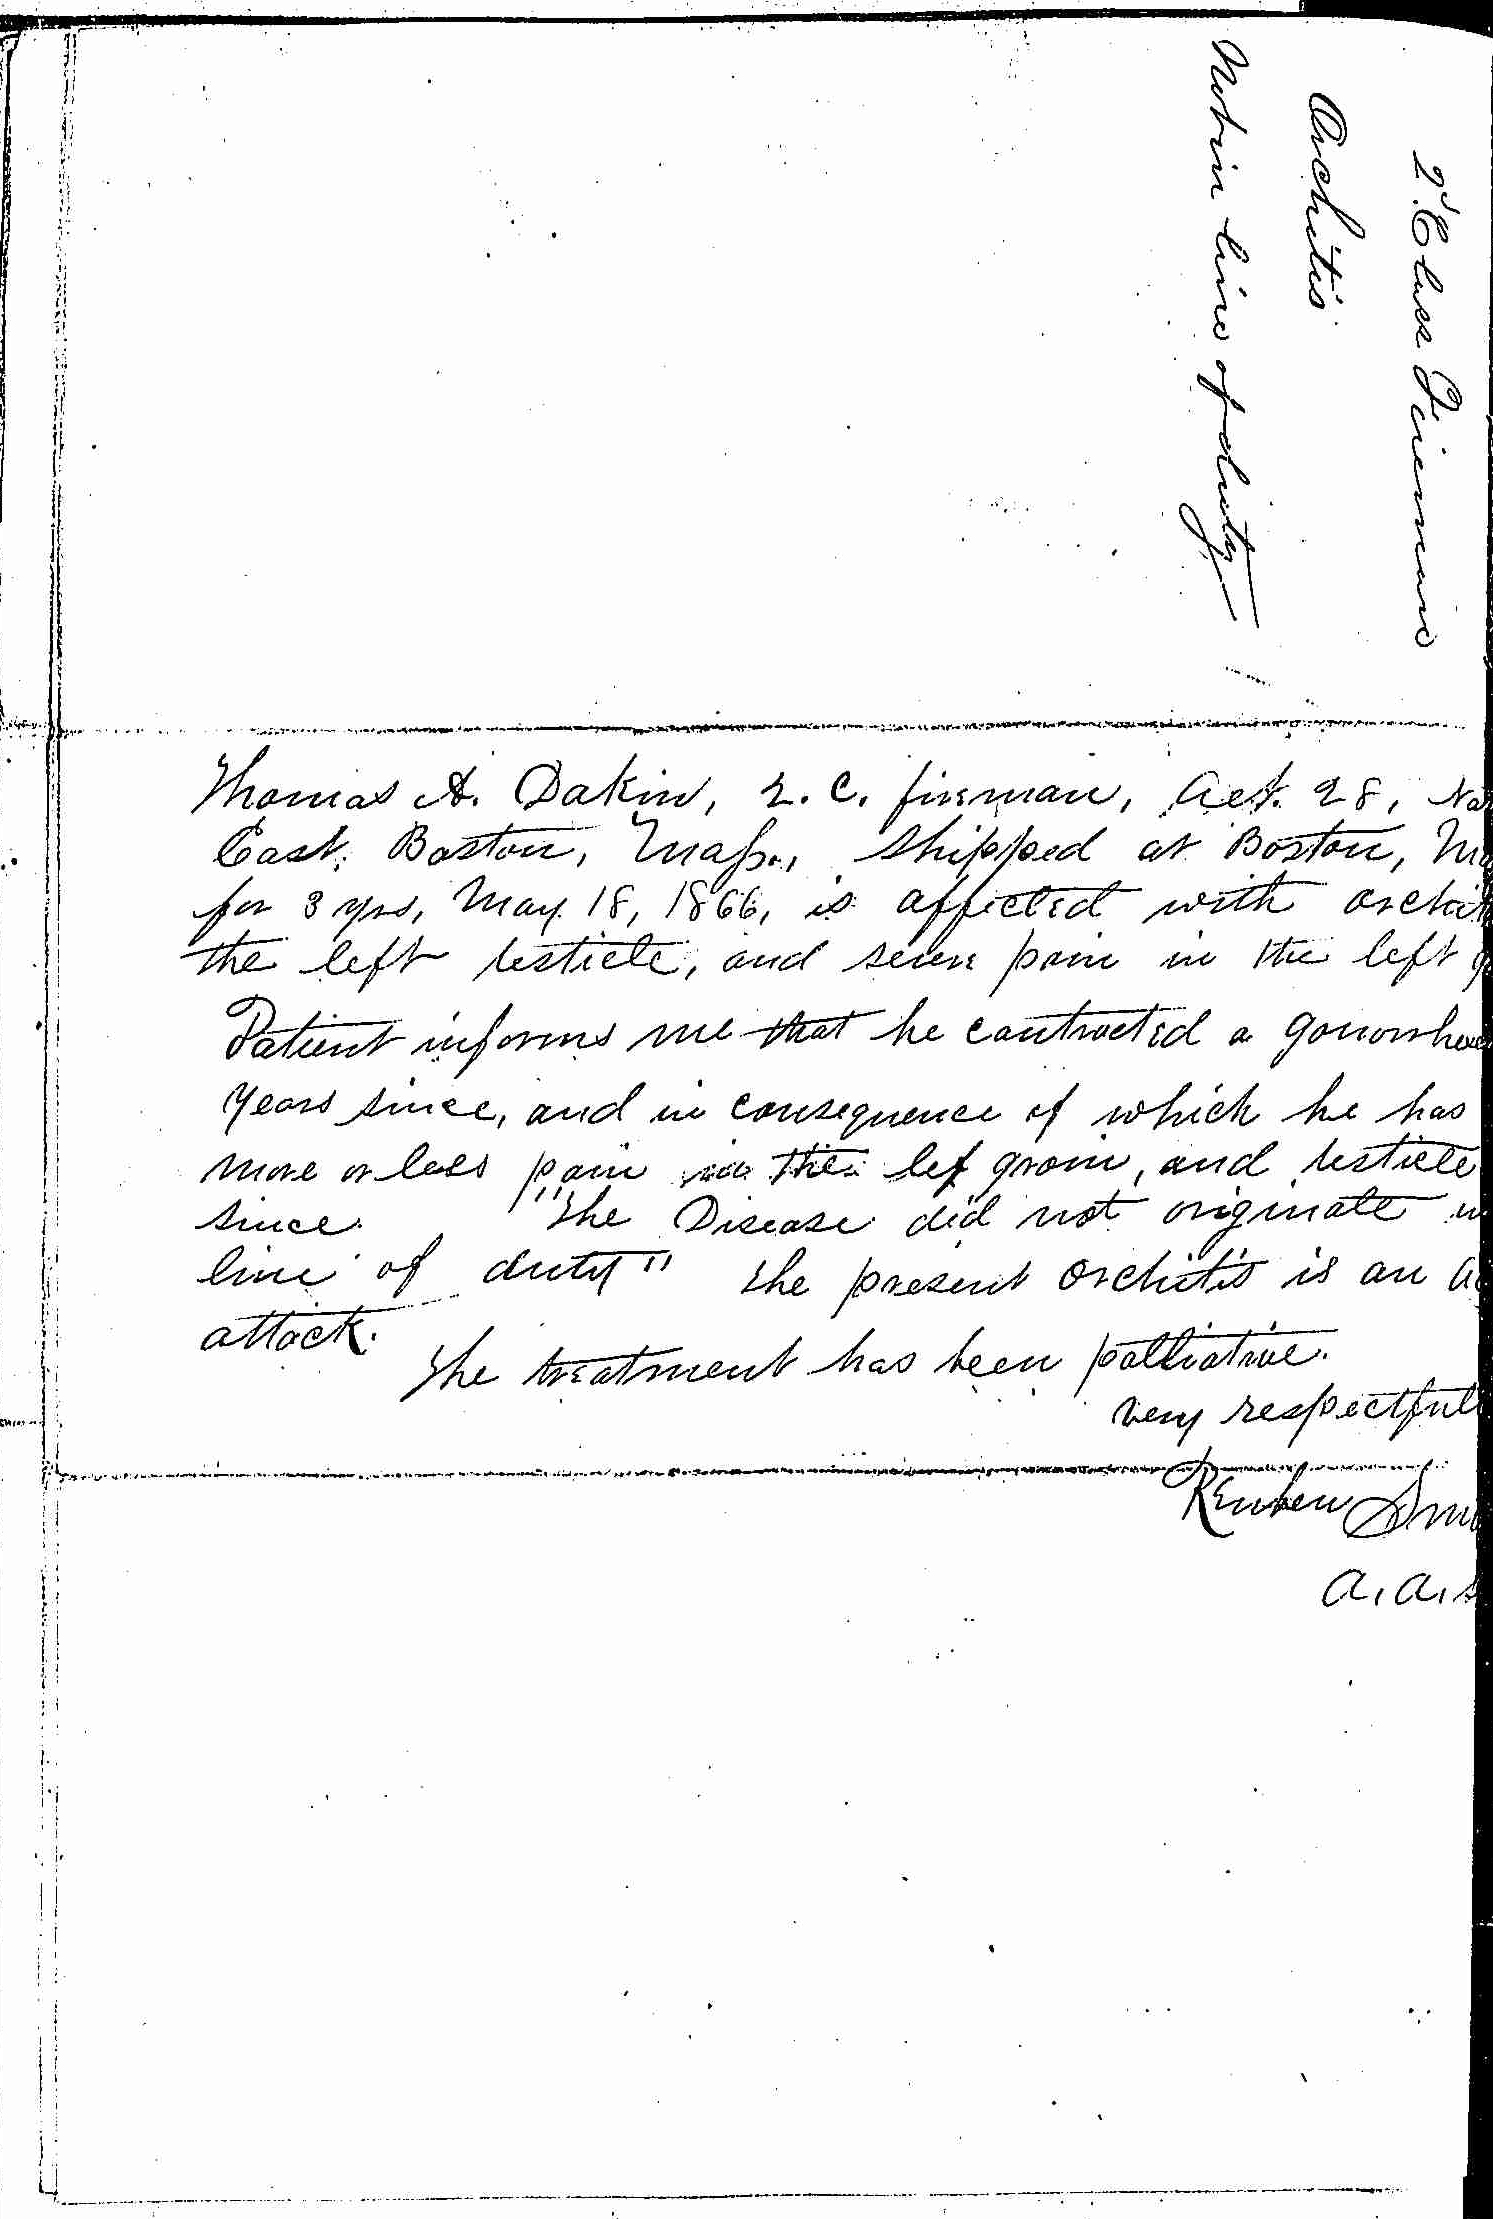 2d Class Fireman
Orchitis
Not in line of duty
Thomas A. Dakin, 2. C. fireman, Aet. 28, Na
East Boston, Mass., Shipped at Boston, Ma
for 3 yrs, May 18, 1866, is affected with orchit
the left testicle, and severe pain in the left g
Patient informs me that he contracted a gonorrhea
Years since, and in consequence of which he has
more or less pain in the lef groin, and testicle
since. "The Disease did not originate in
line of duty" The present Orchitis is an ac
attack.
The treatment has been palliative.
very respectful
Reuben Smi
A. A. S